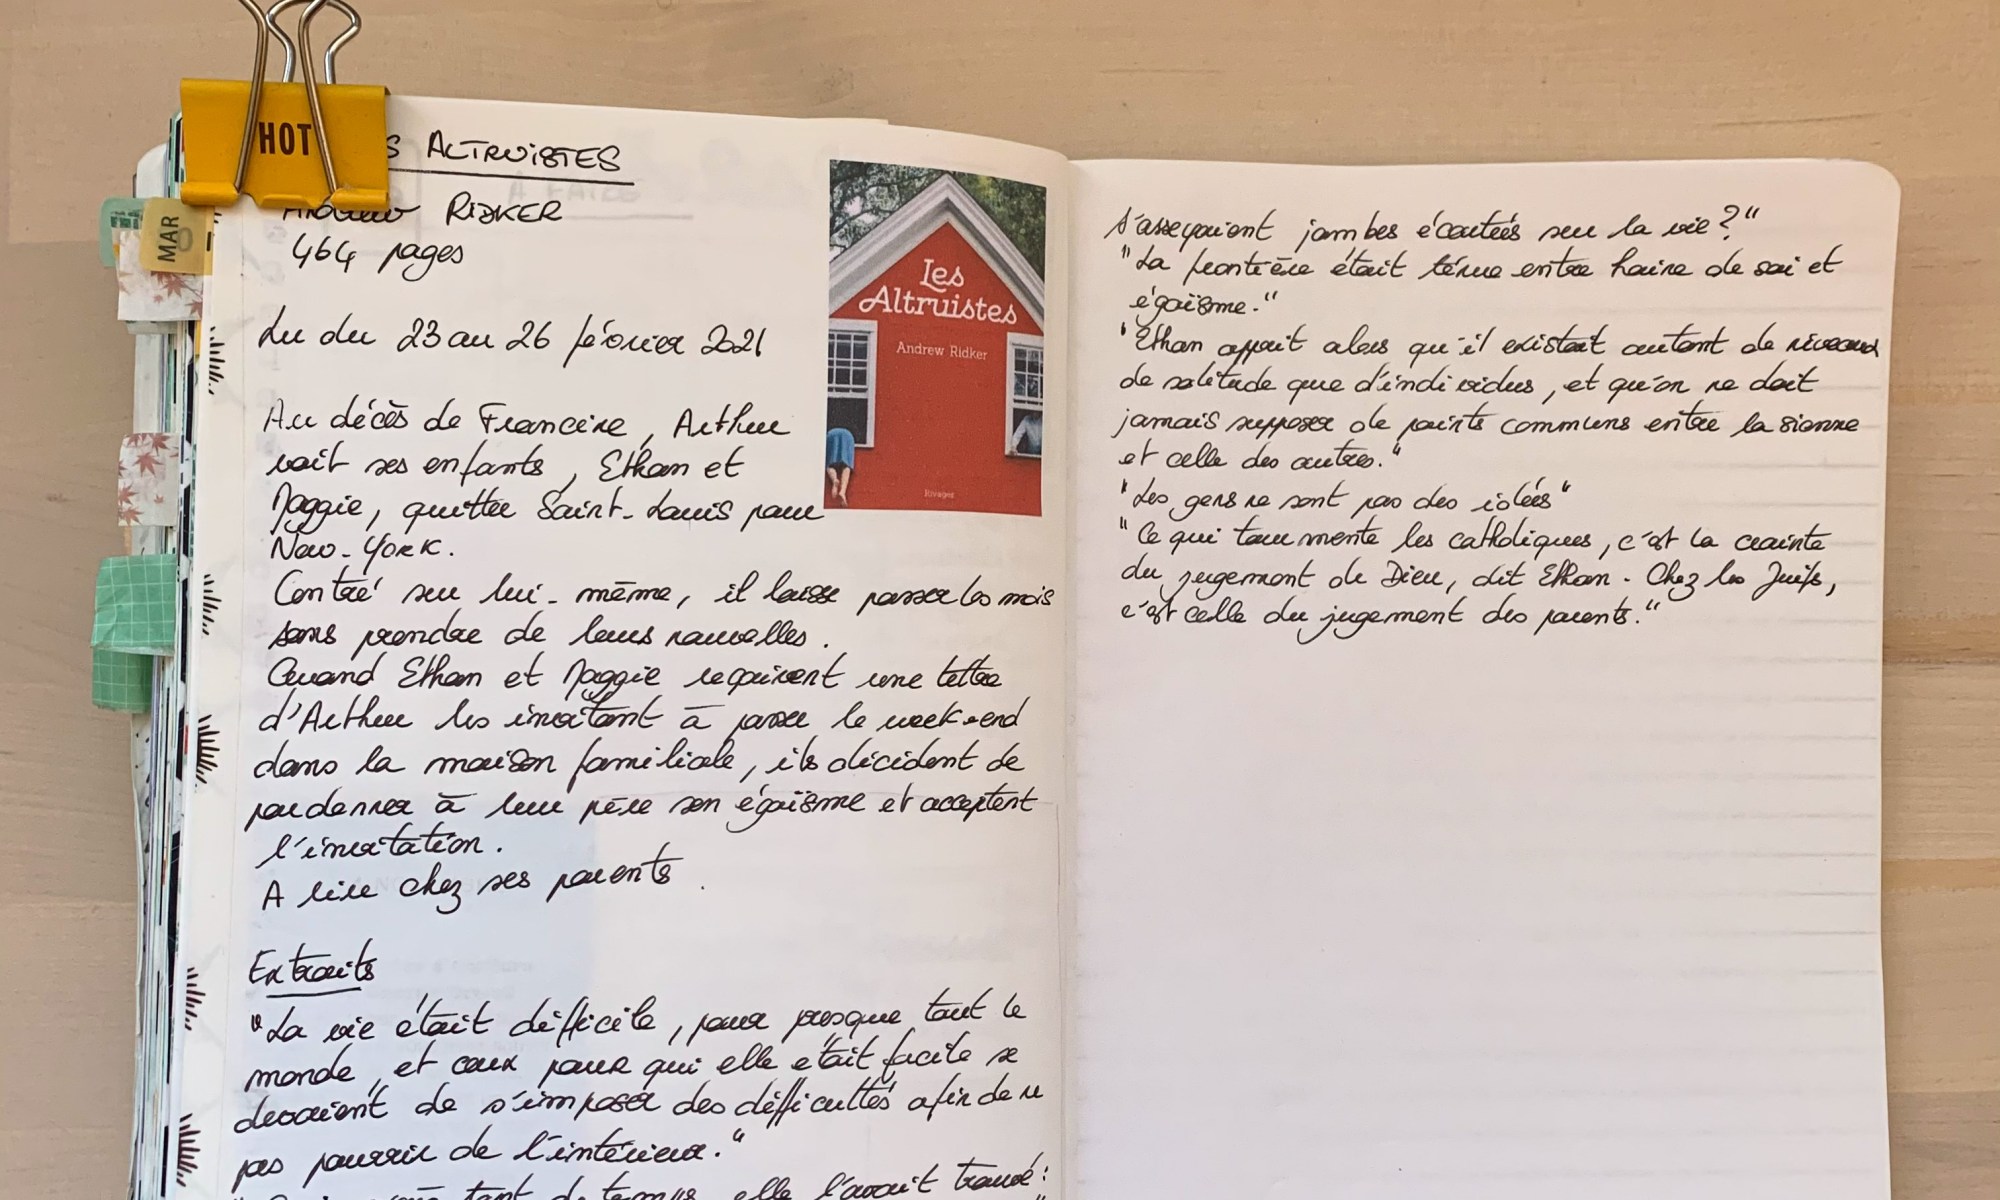 HOT
S ALTRUISTES
RIDKER
464 pages
MAR
Lu du 23 au 26 février 2021
Au décès de Francine, Arthur
voit ses enfants, Ethan et
Maggie, quitter Saint-Louis pour
New-York.
Centré sur lui-même, il laisse passer les mois
sans prendre de leurs nouvelles.
Quand Ethan et Maggie reçoivent une lettre
d'Arthur les invitant à passer le week-end
dans la maison familiale, ils décident de
pardonner à leur père son égoïsme et acceptent
l'invitation.
A lire chez ses parents.
Extraits
"La vie était difficile, pour presque tout le
monde, et ceux pour qui elle était facile se
devaient de s'imposer des difficultés afin de ne
pas pourrir de l'intérieur."
tant de temps, elle l'avait trouvé :
Les
Altruistes
Andrew Ridker
Rivages
s'asseyaient jambes écartées sur la vie ?"
"La frontière était ténue entre haine de soi et
égoïsme."
"Ethan apprit alors qu'il existait autant de niveaux
de solitude que d'individus, et qu'on ne doit
jamais supposer de points communs entre la sienne
et celle des autres."
"Les gens ne sont pas des idées"
"Ce qui tourmente les catholiques, c'est la crainte
du jugement de Dieu, dit Ethan. Chez les Juifs,
c'est celle du jugement des parents."